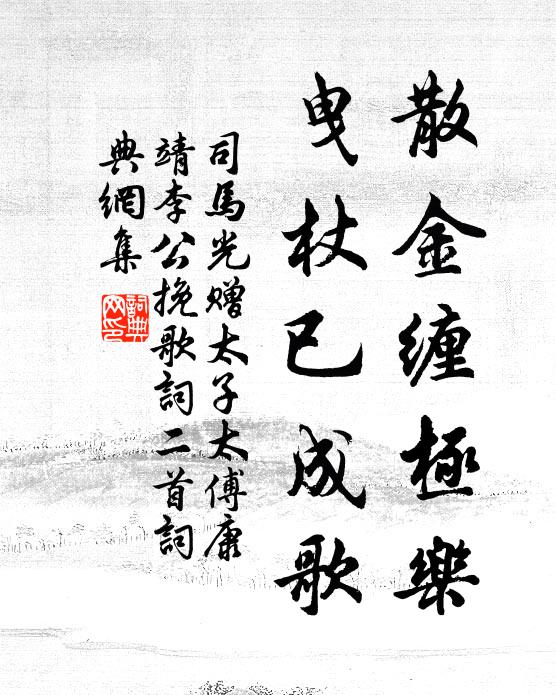 散金缠極樂
曳杖已成歌
司馬光赠太子太傅康
靖李公挽歌詞二首詞
典網集
詞典网印